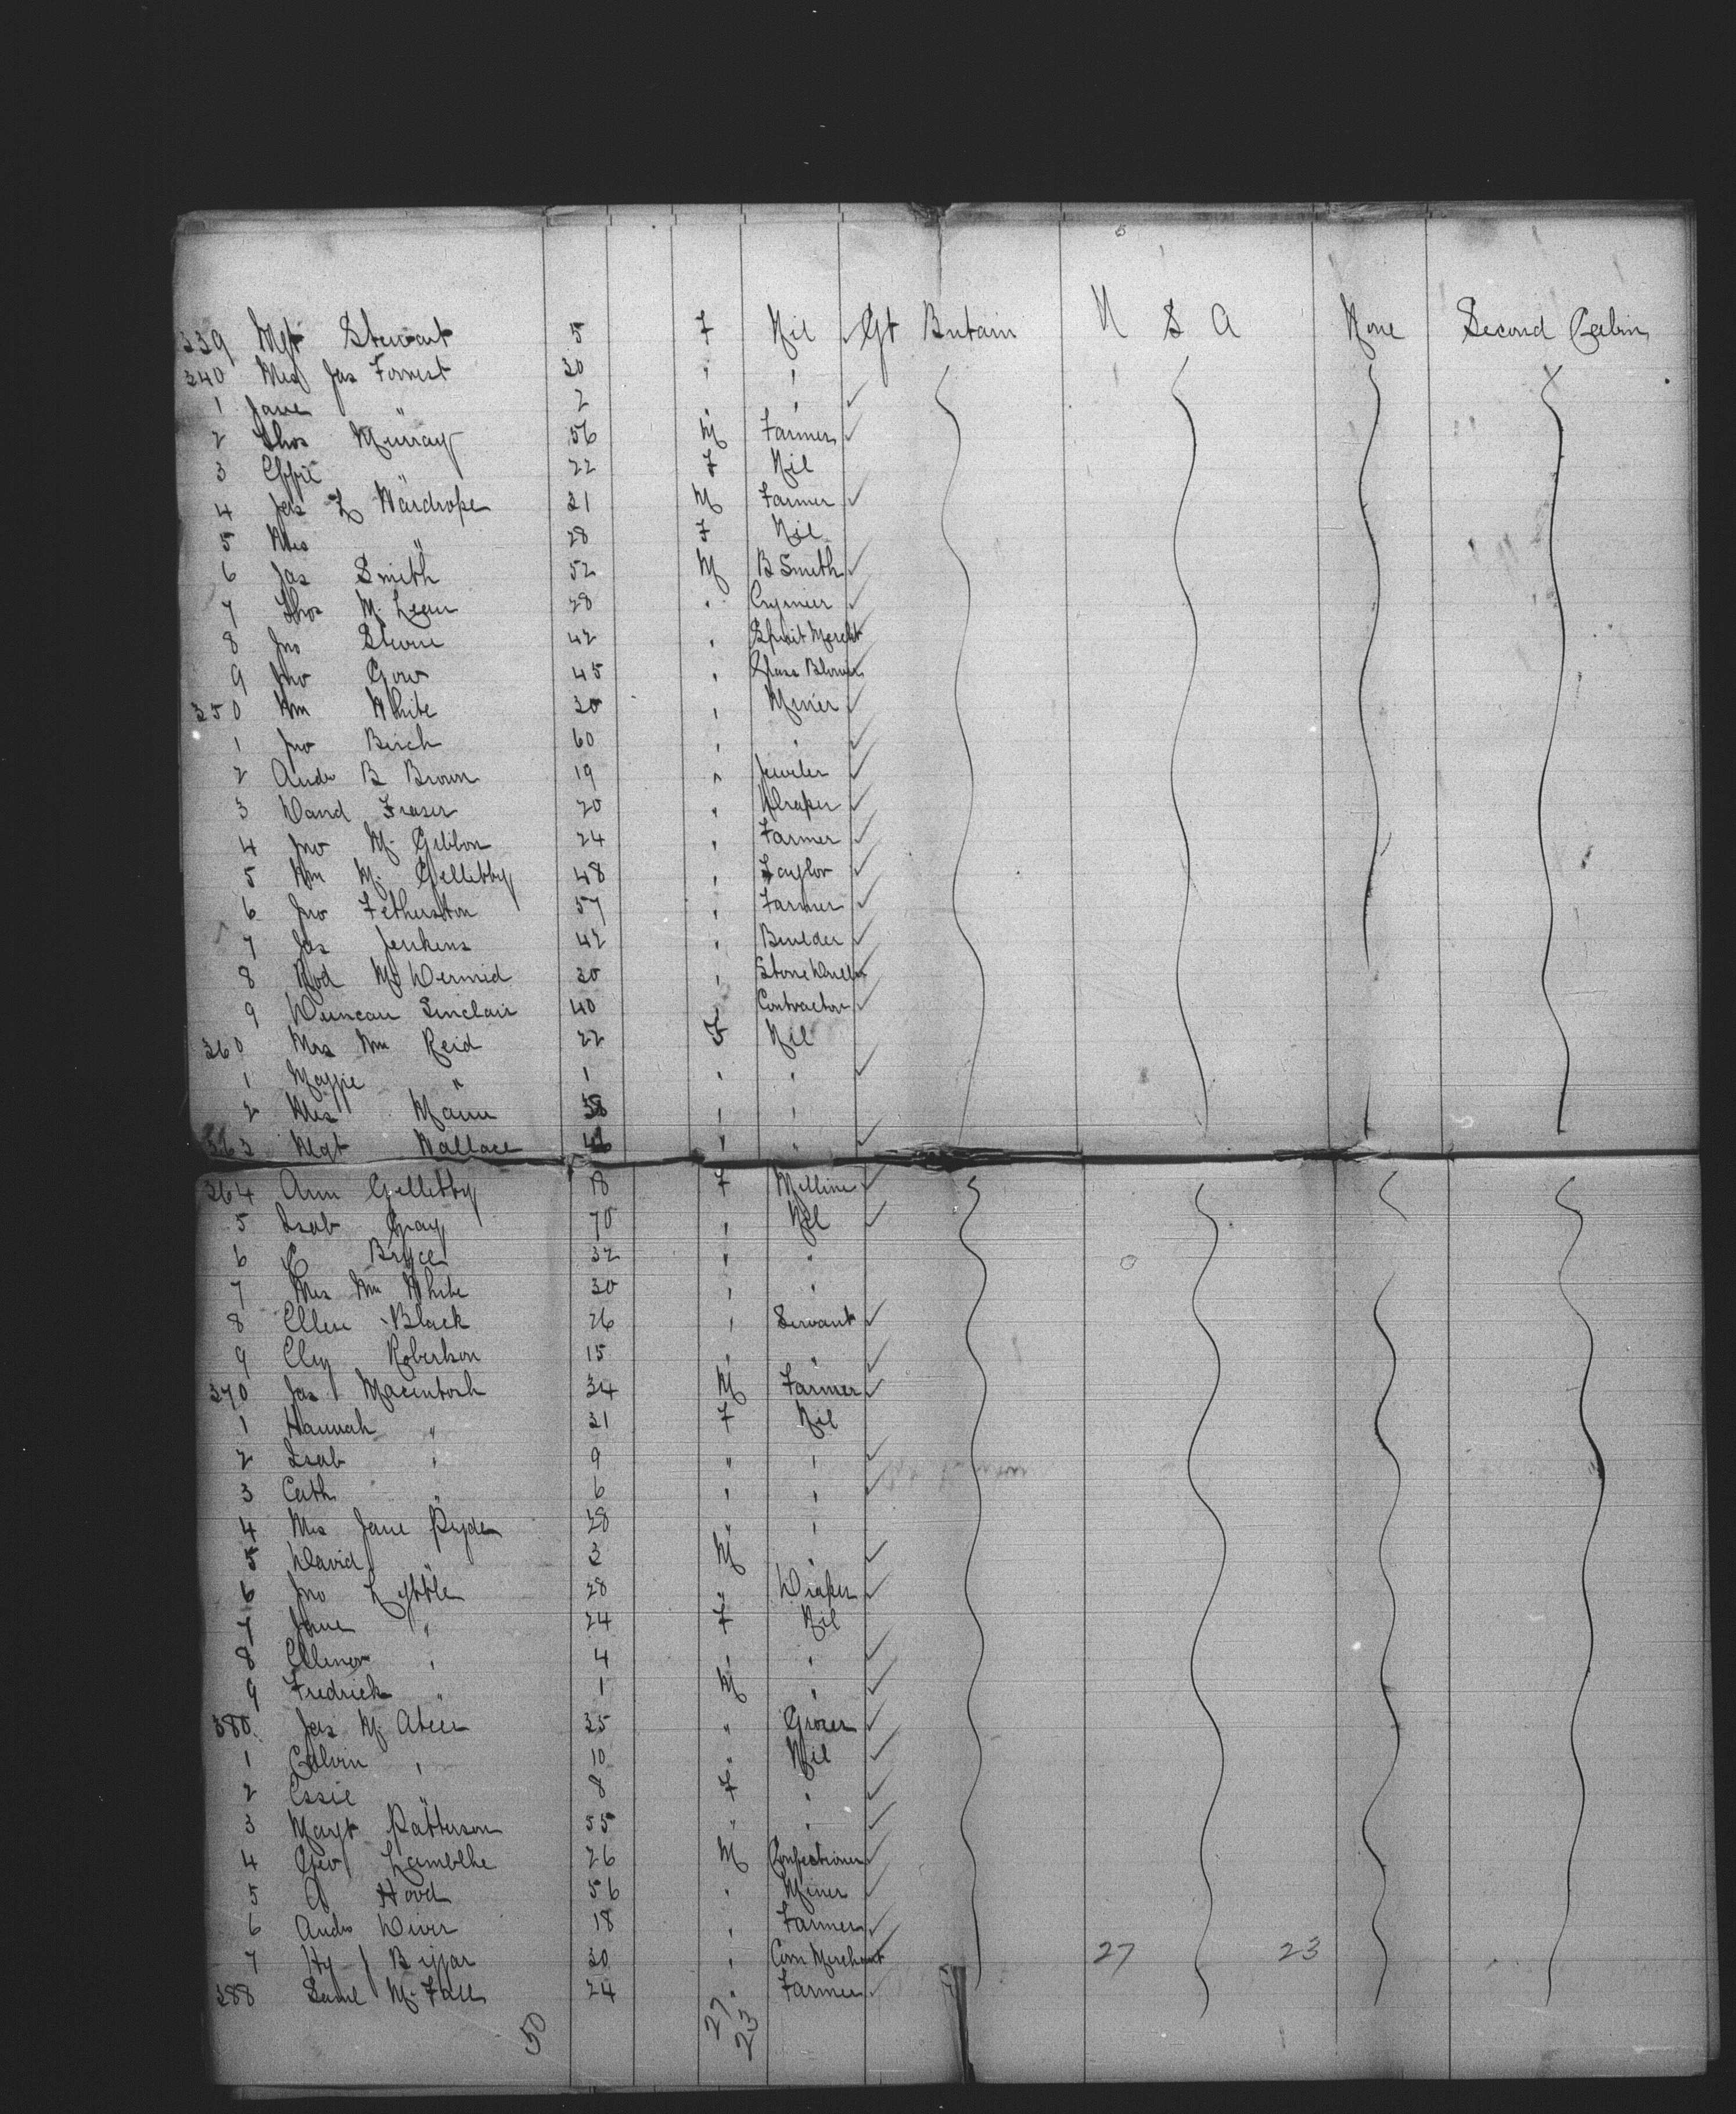 339 Mgt Stewart 5 F Nil ✓ Gt Britain U S A None Second Cabin
340 Mrs Jas Forrest 30 " "
1 Jane " 2 " " ✓
2 Thos Murray 56 M Farmer ✓
3 Effie " 22 F Nil
4 Jas L Wardrope 31 M Farmer ✓
5 Mrs " 28 F Nil
6 Jas Smith 52 M B Smith ✓
7 Thos Mc Lean 28 " ✓
8 Jno Stevne 42 " Spirit Mercht ✓
9 Jno Gow 45 " Glass Blower ✓
350 Wm White 30 " Miner ✓
1 Jno Birch 60 " " ✓
2 Andw B Brown 19 " Jeweler ✓
3 David Fraser 20 " Draper ✓
4 Jno Mc Gibbon 24 " Farmer ✓
5 Wm Mc Gellibby 48 " Taylor ✓
6 Jno Fetherston 57 " Farmer ✓
7 Jas Jenkins 42 " Builder ✓
8 Rod Mc Dermid 30 " Stone Cutter ✓
9 Duncan Sinclair 40 " Contractor ✓
360 Mrs Wm Reid 22 F Nil
1 Maggie " 1 " " ✓
2 Mrs Mann 38 " "
363 Mgt Wallace 46 " " ✓
364 Ann Gellibby 18 F Milliner ✓
5 Isab Gray 70 " Nil ✓
6 C Bryce 32 " "
7 Mrs Wm White 30 " "
8 Ellen Black 26 " Servant ✓
9 Robertson 15 " " ✓
370 Jas Macintosh 34 M Farmer ✓
1 Hannah " 31 F Nil
2 Isab " 9 " " ✓
3 Cath " 6 " " ✓
4 Mrs Jane Ryder 28 " "
5 David " 3 M " ✓
6 Jno Lyttle 28 " Draper ✓
7 Jane " 24 F Nil
8 Ellenor " 4 " " ✓
9 Fredrick " 1 M " ✓
380 Jas Mc Ateer 35 " Grocer ✓
1 Calvin " 10 " Nil ✓
2 Essie " 8 F " ✓
3 Margt Patterson 55 " " ✓
4 Geo Lambthe 26 M Confectioner ✓
5 A Hood 56 " Miner ✓
6 Andw Diver 18 " Farmer ✓
7 Hy J Biggar 30 " Corn Merchant ✓ 27 23
388 Saml Mc Fall 24 " Farmer ✓
50 27 23